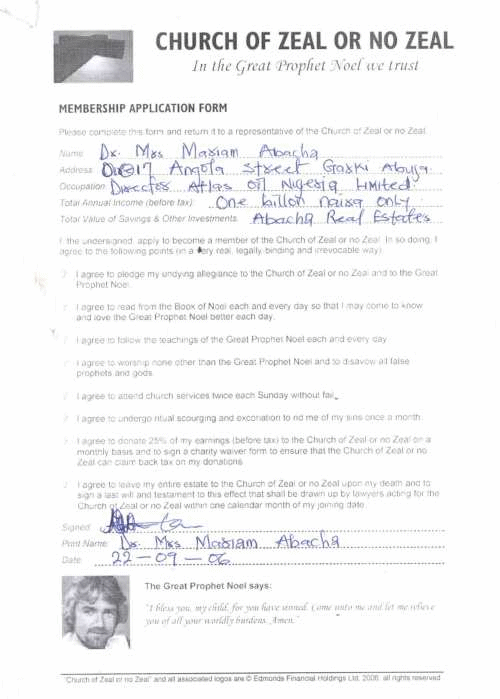 CHURCH OF ZEAL OR NO ZEAL
In the Great Prophet Noel we trust
MEMBERSHIP APPLICATION FORM
Please complete this form and return it to a representative of the Church of Zeal or no Zeal.
Name: Dr. Mrs Mariam Abacha
Address: 17 Angola Street Garki Abuja
Occupation: Director Atlas Oil Nigeria Limited
Total Annual Income (before tax): One billon naira only
Total Value of Savings & Other Investments: Abacha Real Estates
I, the undersigned, apply to become a member of the Church of Zeal or no Zeal. In so doing, I
agree to the following points (in a very real, legally-binding and irrevocable way):
I agree to pledge my undying allegiance to the Church of Zeal or no Zeal and to the Great
Prophet Noel.
I agree to read from the Book of Noel each and every day so that I may come to know
and love the Great Prophet Noel better each day.
I agree to follow the teachings of the Great Prophet Noel each and every day.
I agree to worship none other than the Great Prophet Noel and to disavow all false
prophets and gods.
I agree to attend church services twice each Sunday without fail.
I agree to undergo ritual scourging and excoriation to rid me of my sins once a month.
I agree to donate 25% of my earnings (before tax) to the Church of Zeal or no Zeal on a
monthly basis and to sign a charity waiver form to ensure that the Church of Zeal or no
Zeal can claim back tax on my donations.
I agree to leave my entire estate to the Church of Zeal or no Zeal upon my death and to
sign a last will and testament to this effect that shall be drawn up by lawyers acting for the
Church of Zeal or no Zeal within one calendar month of my joining date.
Signed:
Print Name: Dr. Mrs Mariam Abacha
Date: 22-09-06
The Great Prophet Noel says:
"I bless you, my child, for you have sinned. Come unto me and let me relieve
you of all your worldly burdens. Amen."
"Church of Zeal or no Zeal" and all associated logos are © Edmonds Financial Holdings Ltd, 2006. all rights reserved